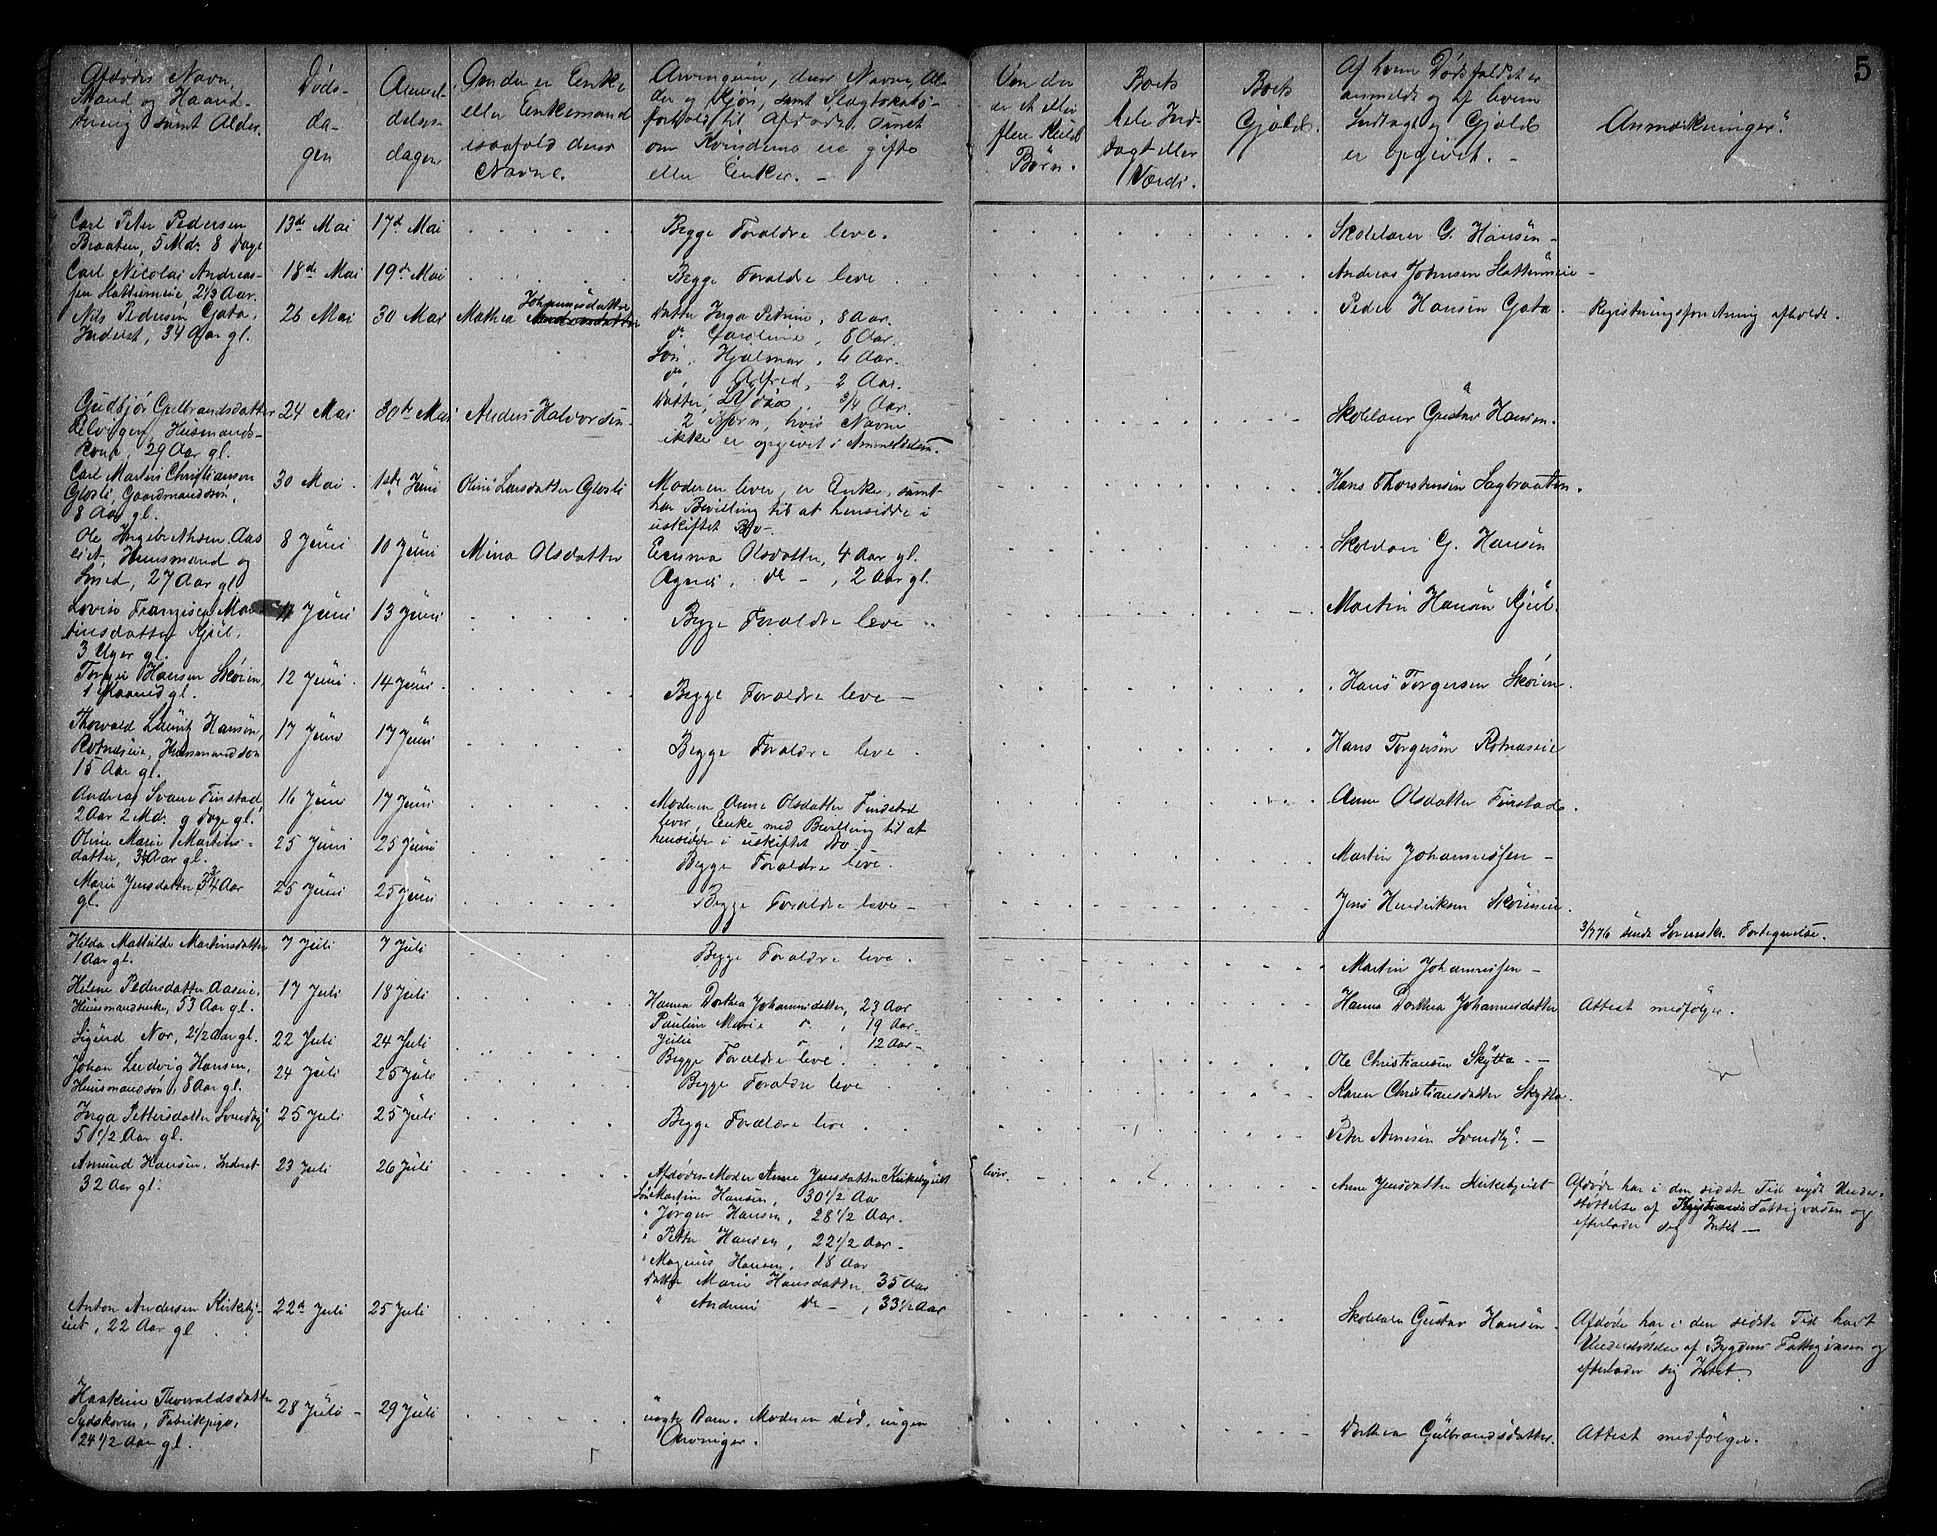 5
Afdødes Navn,
Stand og Haand-
tering samt Alder.
Døds-
da-
gen
Anmel-
delses-
dagen
Om der er Enke
eller Enkemand
isaafald deres
Navne.
Arvingerne, deres Navne, Al-
der og Kjøn, samt Slægtskabs-
forhold til Afdøde, samt
om Kvinderne ere gifte
eller Enker. -
Om der
er et eller
flere Kuld
Børn.
Boets
hele Ind-
tægt eller
Værdi.
Boets
Gjæld.
Af hvem Dødsfaldet er
anmeldt og af hvem
Indtægt og Gjæld
er opgivet. -
Anmærkninger.
Carl Peter Pedersen
Braaten, 5 Md. 8 Dage
13de Mai
17d Mai
Begge Forældre leve.
Skolelærer G. Hansen -
Carl Nicolai Andreas-
sen Slattumeie 2 1/3 Aar.
18de Mai
19de Mai
Begge Forældre leve
Andreas Johnsen Slattumeie -
Nils Pedersen Gata,
Inderst, 34 Aar gl.
26 Mai
30 Mai
Mathea Johannesdatter
Datter Inga Petrine, 8 Aar.
do Caroline, 8 Aar.
Søn, Hjalmar, 6 Aar.
do, Alfred, 2 Aar.
Datter, Lydia 3/4 Aar.
Peder Hansen Gata.
Registreringsforretning afholdt.
Gudbjør Gulbrandsdatter
Elvigen, Husmands-
Kone, 29 Aar gl.
24 Mai
30te Mai
Anders Halvorsen
2 Børn, hvis Navne
ikke er opgivet i Anmeldelsen.
Skolelærer Gustav Hansen.
Carl Martin Christiansen
Glosli, Gaardmandssøn,
8 Aar gl.
30 Mai
1ste Juni
Oline Larsdatter Glosli
Moderen lever, er Enke, samt
har Bevilling til at hensidde i
uskiftet Bo -
Hans Thorstensen Sagbraaten.
Ole Ingebrethsen Aas-
eiet, Huusmand og
Smed, 27 Aar gl.
8 Juni
10 Juni
Mina Olsdatter
Emma Olsdatter, 4 Aar gl.
Agnes, do -, 2 Aar gl.
Skolelær G. Hansen
Lovise Franzisca Mar-
tinsdatter Kjul,
3 Uger gl.
11 Juni
13 Juni
Begge Forældre leve
Martin Hansen Kjul.
Torger Hansen Skøien,
1 Maaned gl.
12 Juni
14 Juni
Begge Forældre leve -
Hans Torgersen Skøien.
Thorvald Laurit Hansen,
Rotnæseie, Husmandssøn
15 Aar gl.
17 Juni
17 Juni
Begge Forældre leve
Hans Torgersen Rotnæseie
Andreas Svane Finstad,
2 Aar 2 Md. 9 Dage gl.
16 Juni
17 Juni
Moderen Anne Olsdatter Finstad
lever, Enke med Bevilling til at
hensidde i uskiftet Bo
Anne Olsdatter Finstad
Oline Marie Martins-
datter, 3/4 Aar gl.
25 Juni
25 Juni
Begge Forældre leve.
Martin Johannessen -
Marie Jensdatter 3/4 Aar
gl.
25 Juni
25 Juni
Begge Forældre leve -
Jens Hendriksen Skøieneie.
3/7 76 sendt Sorenskr. Fortegnelse.
Hilda Mathilde Martinsdatter
1 Aar gl.
7 Juli
7 Juli
Begge Forældre leve.
Martin Johannessen -
Helene Pedersdatter Aaseie,
Huusmandsenke, 53 Aar gl.
17 Juli
18 Juli
Hanna Dorthea Johannesdatter, 23 Aar
Pauline Marie, 19 Aar.
Julie, 12 Aar -
Hanna Dorthea Johannesdatter
Attest medfølger.
Sigurd Nor, 2 1/2 Aar gl.
22 Juli
24 Juli
Begge Forældre leve.
Ole Christiansen Skytta. -
Johan Ludvig Hansen,
Huusmandssøn, 8 Aar gl.
24 Juli
25 Juli
Begge Forældre leve
Karen Christiansdatter Skytta.
Inga Pettersdatter Svendby
5 1/2 Aar gl.
25 Juli
25 Juli
Begge Forældre leve
Peter Arnesen Svendby. -
Amund Hansen, Inderst
32 Aar gl.
23 Juli
26 Juli
Afdødes Moder Anne Jensdatter Kirkebyeiet
lever. -
Søn Martin Hansen, 30 1/2 Aar
" Jørgen Hansen, 28 1/2 Aar.
" Petter Hansen, 22 1/2 Aar -
" Magnus Hansen, 18 Aar
Datter Marie Hansdatter, 35 Aar
" Andrine do -, 33 1/2 Aar
Anne Jensdatter Kirkebyeiet
Afdøde har i den sidste Tid nydt Under-
støttelse af Kristiania Fattigvæsen og
efterlader sig Intet -
Anton Andersen Kirkeby-
eiet, 22 Aar gl
22d Juli
25 Juli
Skolelær Gustav Hansen.
Afdøde har i den sidste Tid havt
Understøttelse af Bygdens Fattigvæsen og
efterlader sig Intet.
Haakine Thorvaldsdatter
Sydskoven, Fabrikpige,
24 1/2 Aar gl.
28 Juli -
29 Juli
uægte Barn. Moderen død, ingen
Arvinger.
Dorthea Gulbrandsdatter.
Attest medfølger.